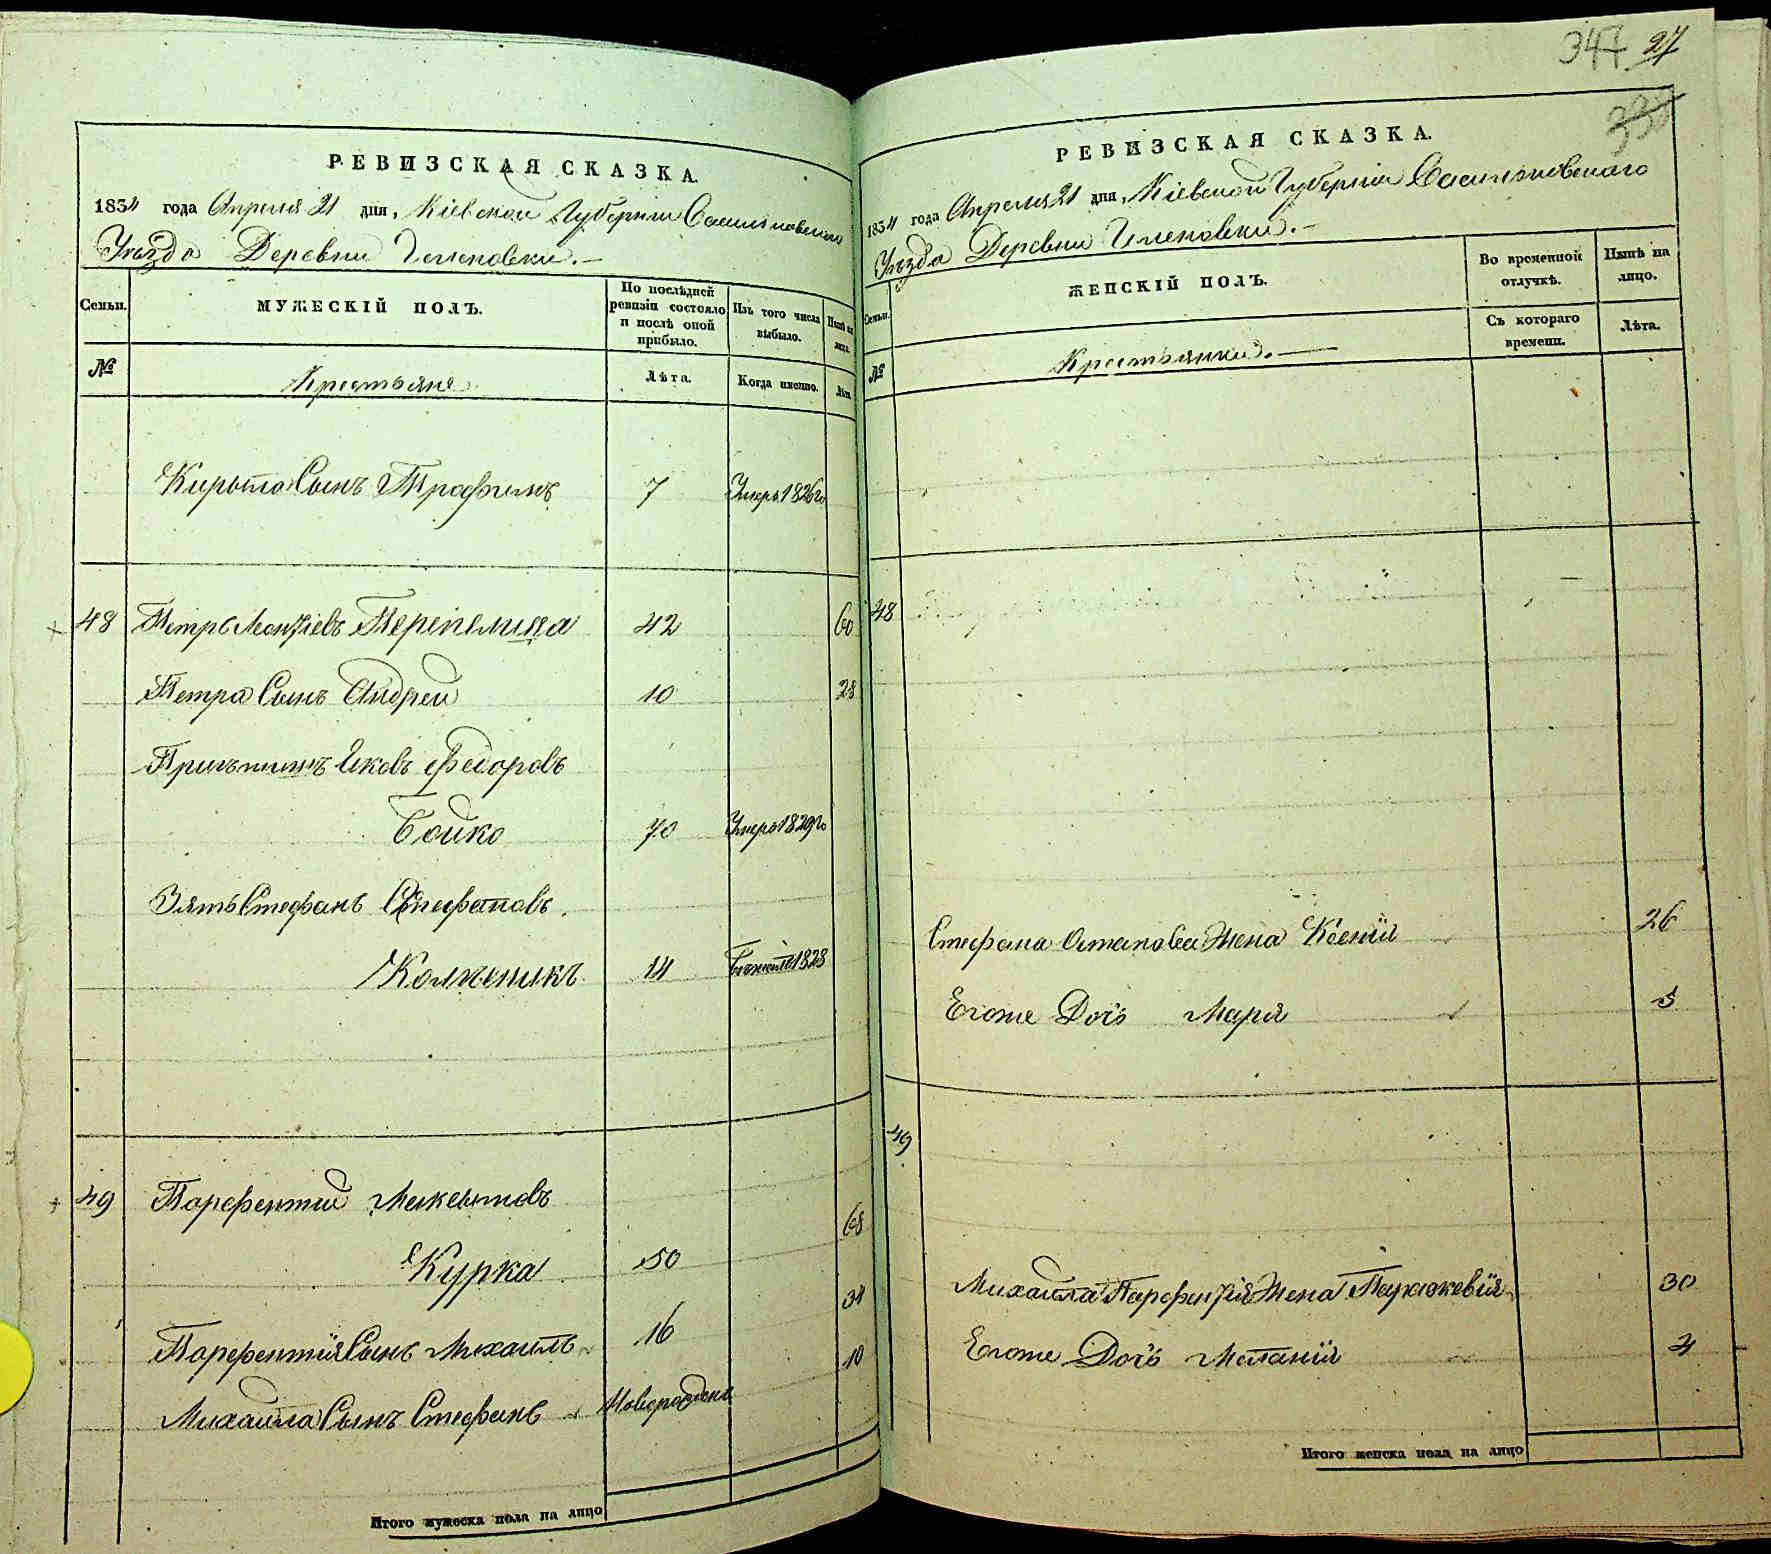 347 27
338
РЕВИЗСКАЯ СКАЗКА.
1834 года Апреля 21 дня, Кіевской Губерніи
Уѣзда Деревни
Семьи.
МУЖЕСКІЙ ПОЛЪ.
По послѣдней ревизіи состояло и послѣ оной прибыло.
Изъ того числа выбыло.
Нынѣ на лицо.
№
Крестьяне
Лѣта.
Когда именно.
Лѣта.
Сынъ Трофимъ 7 Умеръ 1826го
48 Петръ Перепелица 42 60
Петра Сынъ Андрей 10 28
Яковъ Федоровъ
Бойко 70 Умеръ 1829го
Зять Стефанъ
14 1828
49 Парфентий
Курка 50 68
Парфентія Сынъ Михаилъ 16 34
Михаила Сынъ Стефанъ Новорожденъ 10
Итого мужеска пола на лицо
РЕВИЗСКАЯ СКАЗКА.
1834 года Апреля 21 дня, Кіевской Губерніи
Уѣзда Деревни
Семьи.
ЖЕНСКІЙ ПОЛЪ.
Во временной отлучкѣ.
Нынѣ на лицо.
№
Крестьянки.
Съ котораго времени.
Лѣта.
48
Стефана Жена Ксенія 26
Егоже Дочь Марія 5
49
Михайла Парфентія Жена 30
Егоже Дочь Меланія 4
Итого женска пола на лицо